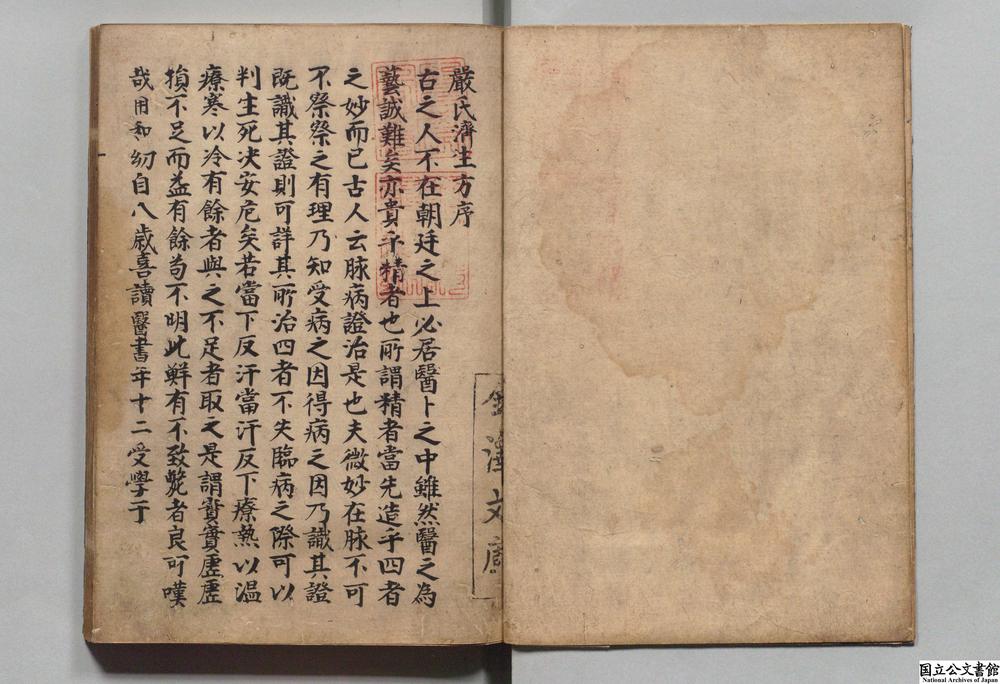 嚴氏濟生方序
古之人不在朝廷之上必居醫卜之中雖然醫之為
藝誠難矣亦貴乎精者也所謂精者當先造乎四者
之妙而已古人云脉病證治是也夫微妙在脉不可
不察察之有理乃知受病之因得病之因乃識其證
既識其證則可詳其所治四者不失臨病之際可以
判生死决安危矣若當下反汗當汗反下療熱以温
療寒以冷有餘者與之不足者取之是謂實實虛虛
損不足而益有餘苟不明此鮮有不致斃者良可嘆
哉用和幼自八歳喜讀醫書年十二受學于
金澤文庫
国立公文書館
National Archives of Japan